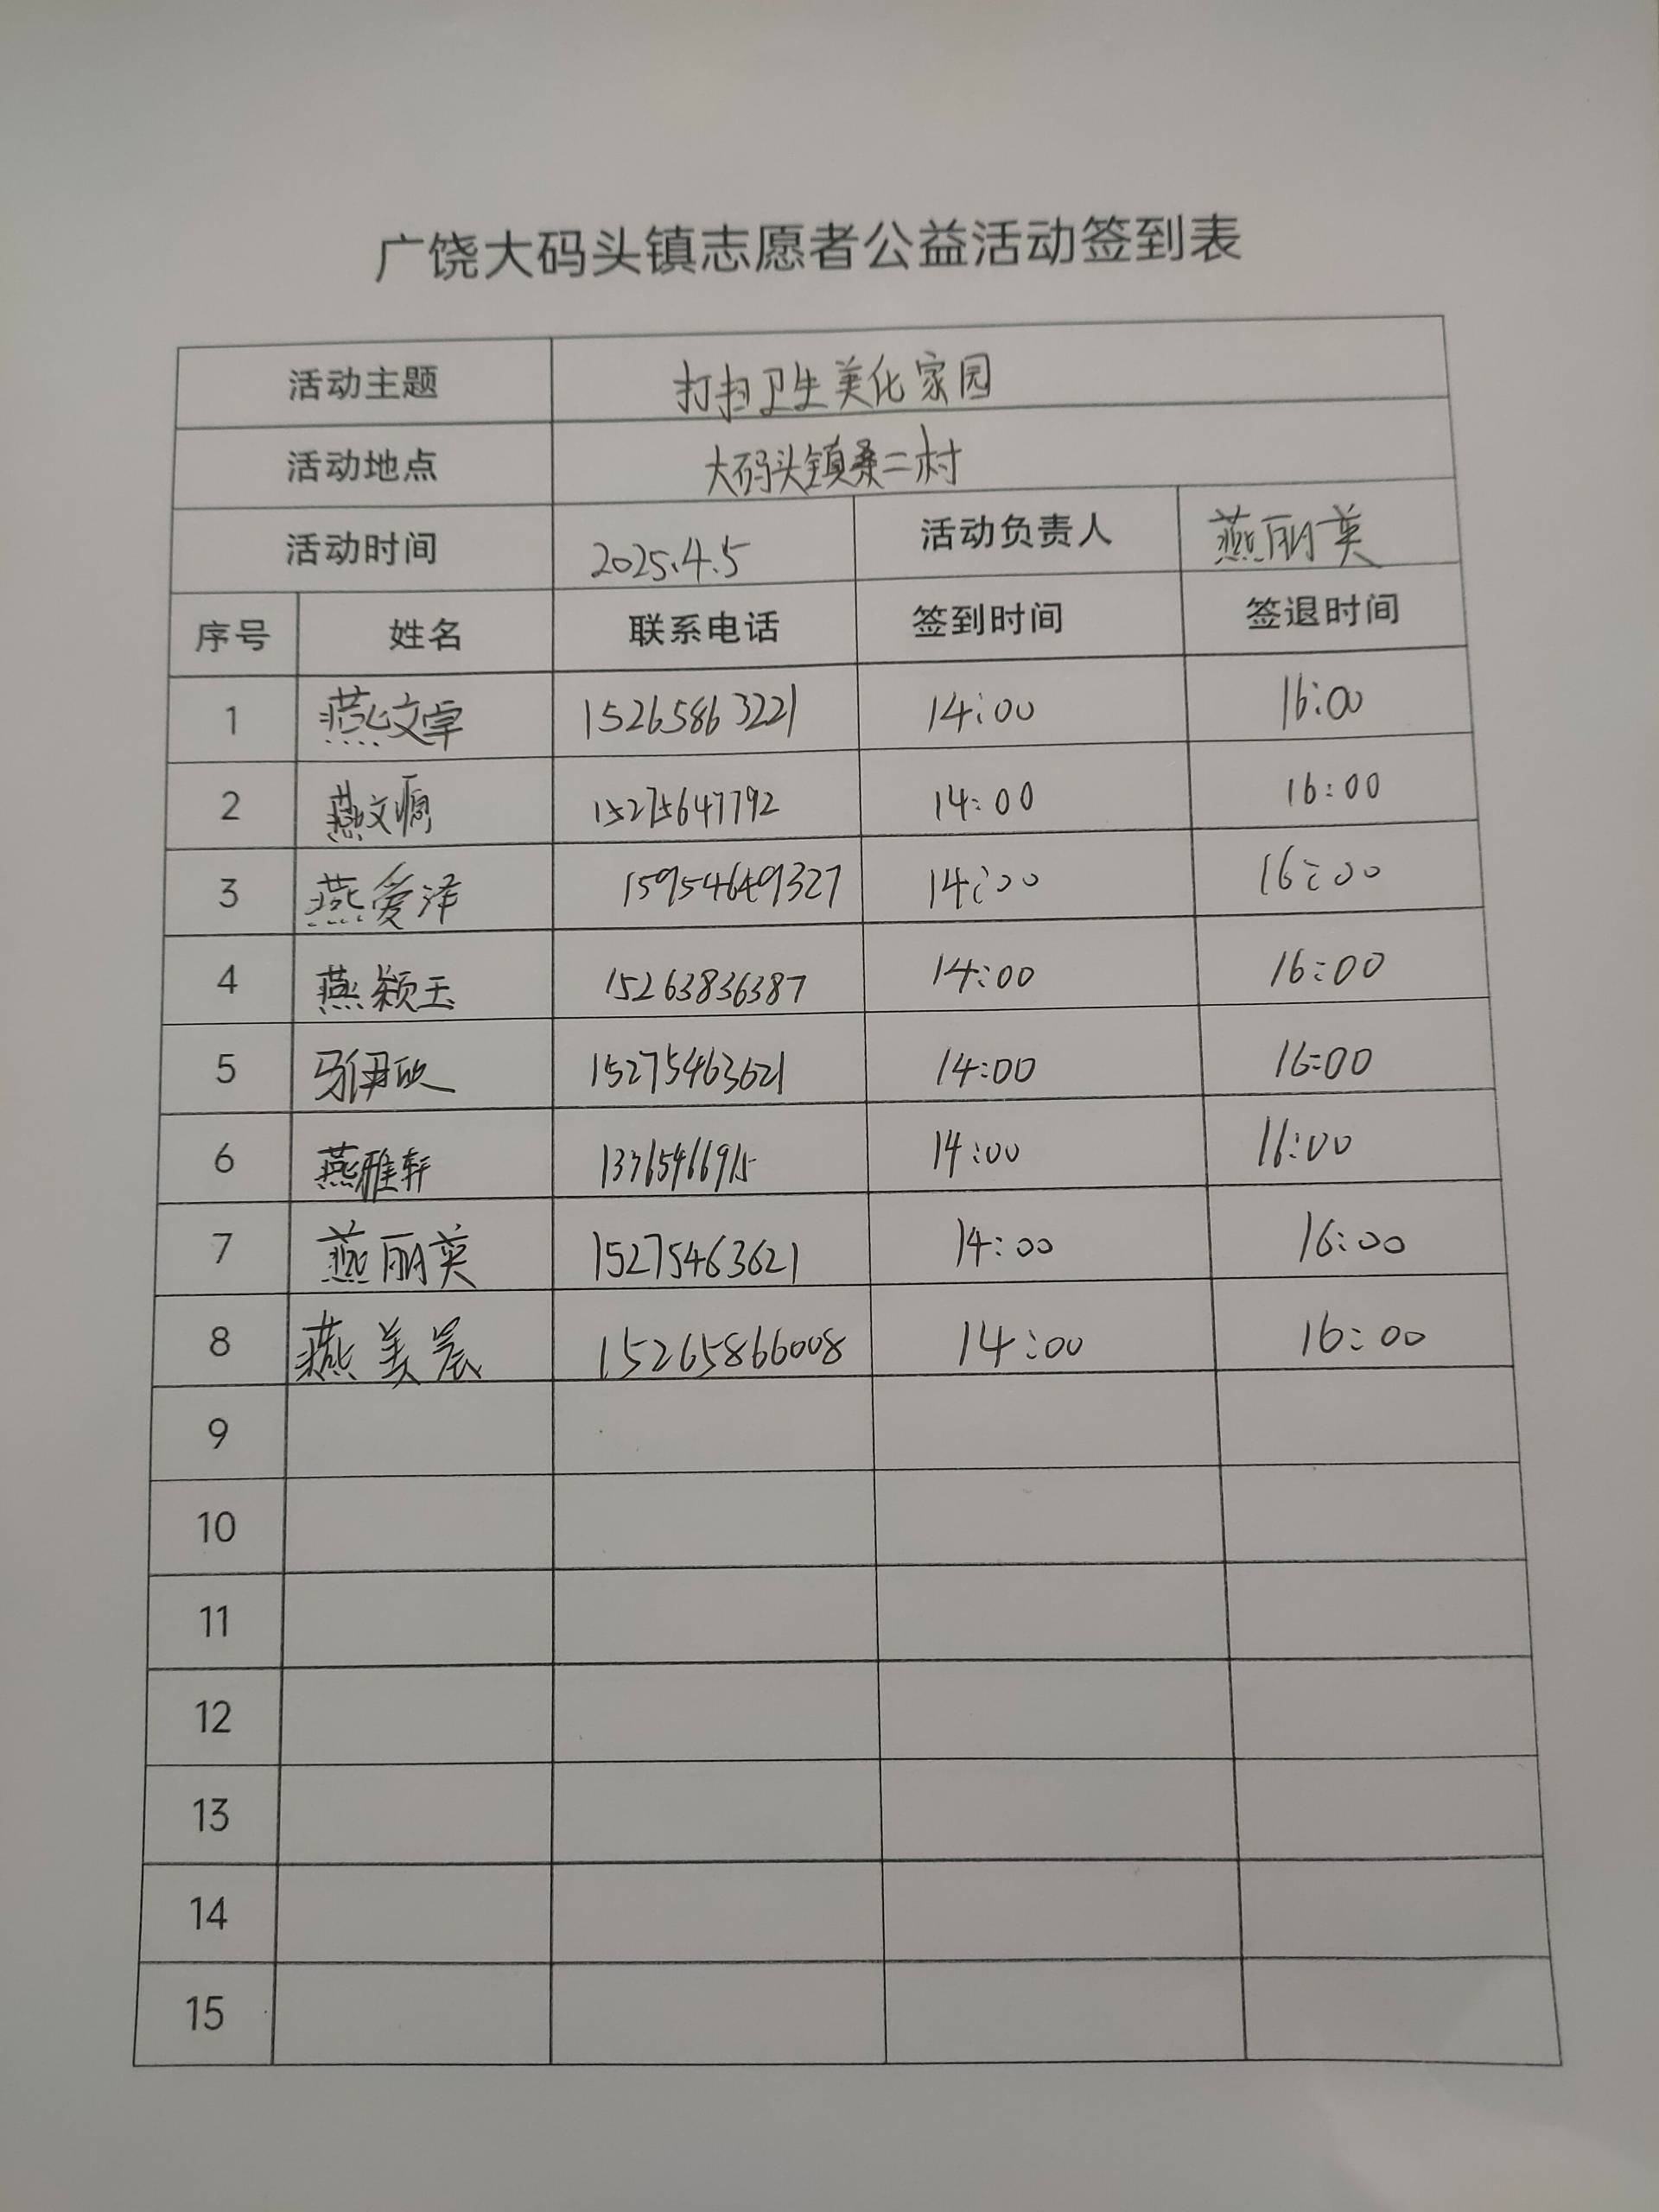 广饶大码头镇志愿者公益活动签到表
活动主题 打扫卫生美化家园
活动地点 大码头镇桑二村
活动时间 2025.4.5 活动负责人 燕丽英
序号 姓名 联系电话 签到时间 签退时间
1 燕文卓 15265863221 14:00 16:00
2 燕文顺 15275647792 14:00 16:00
3 燕爱泽 15954649327 14:00 16:00
4 燕颖玉 15263836387 14:00 16:00
5 马伊欣 15275463621 14:00 16:00
6 燕雅轩 14:00 16:00
7 燕丽英 15275463621 14:00 16:00
8 燕美晨 15265866008 14:00 16:00
9
10
11
12
13
14
15